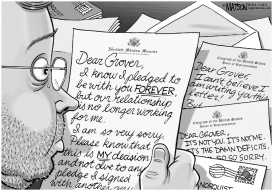 MATSON
United States Senate
Dear Grover,
I know I pledged to
be with you FOREVER,
but our relationship
is no longer working
for me.
I am so very sorry.
Please know that
this is MY decision
and not due to an
pledge I signed
with another guy
Congress of the United States
House of Representatives
Dear Grover,
I can't believe I
am writing you this
letter! But
Congress of the United States
House of Representatives
DEAR GROVER,
IT'S NOT YOU. IT'S ME.
IT'S THE DAMN DEFICITS.
SO SO SORRY.
NORQUIST